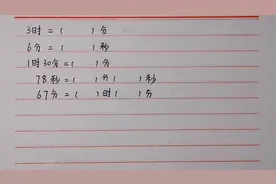 3时=( )分
6分=( )秒
1时30分=( )分
78秒=( )分( )秒
67分=( )时( )分